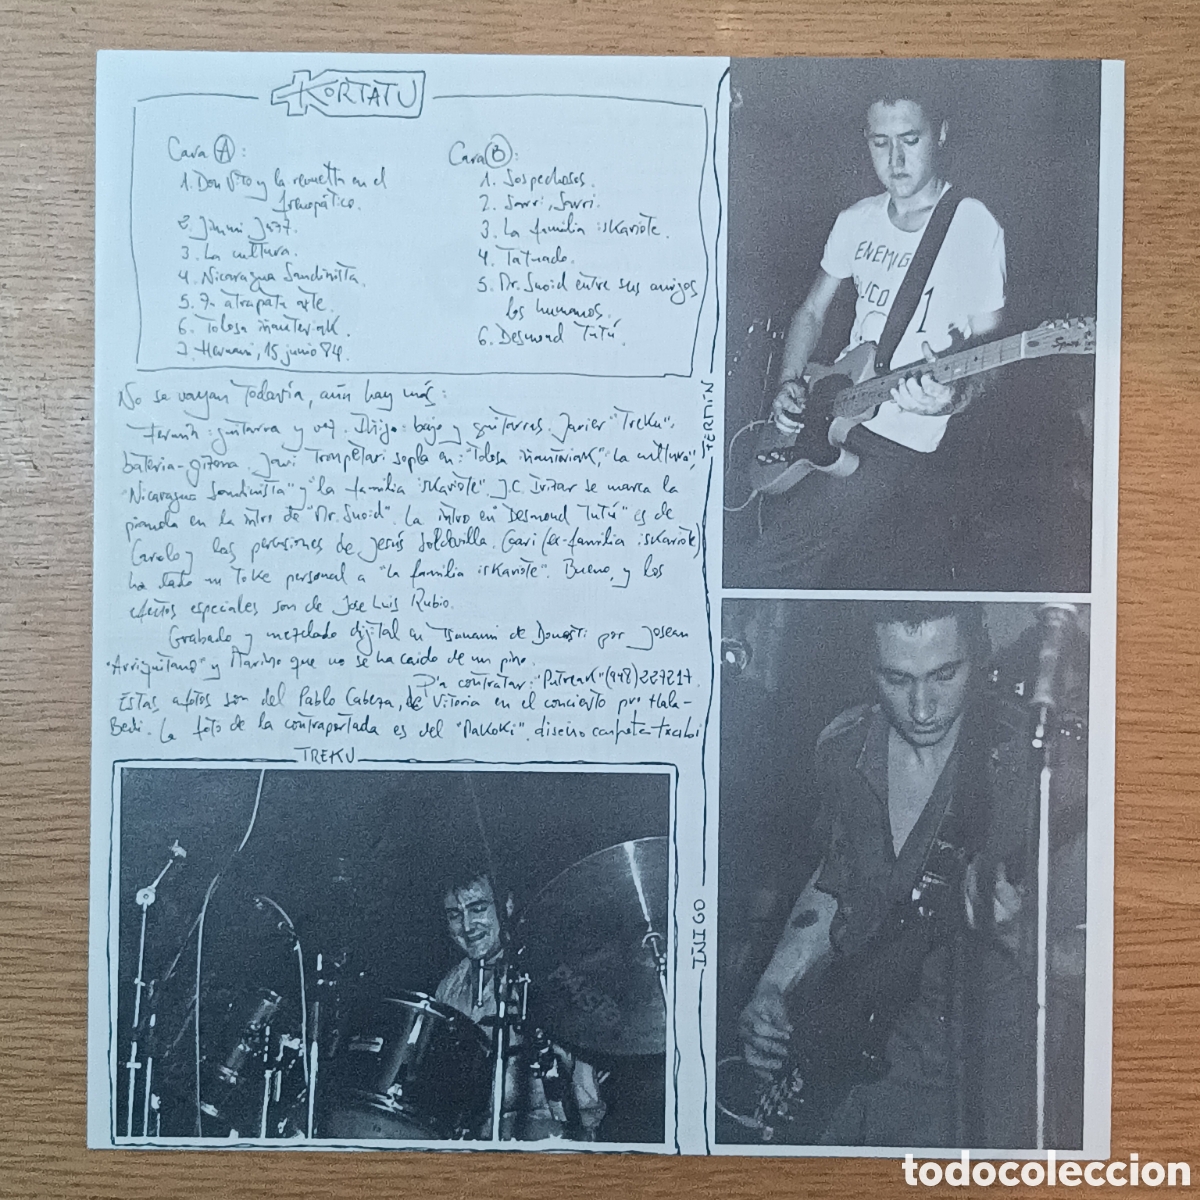 KORTATU
Cara A:
1. Don Vito y la revuelta en el
frenopático.
2. Jimmi Jazz.
3. La cultura.
4. Nicaragua Sandinista.
5. Za atrapatu arte.
6. Tolosa iñauteriak.
7. Hernani, 15 junio 84.
Cara B:
1. Sospechosos.
2. Sarri, Sarri.
3. La familia iskariote.
4. Tatuado.
5. Mr. Snoid entre sus amigos
los humanos.
6. Desmond Tutú.
No se vayan todavía, aún hay más:
Fermín: guitarra y voz. Iñigo: bajo y guitarras. Javier "Treku",
bateria-gizona. Javi Trompetari sopla en: "Tolosa iñauteriak", "La cultura",
"Nicaragua Sandinista" y "la familia iskariote". J.C. Irizar se marca la
pianola en la intro de "Mr. Snoid". La intro en "Desmond Tutú" es de
y las percusiones de Jesús Soldevilla. Gari (ex-familia iskariote)
ha dado un toke personal a "la familia iskariote". Bueno, y los
efectos especiales son de Jose Luis Rubio.
Grabado y mezclado dijital en Tsunami de Donosti por Josean
y Marino que no se ha caido de un pino.
P'a contratar: "Putreak" (948) 227217.
Estas afotos son del Pablo Cabeza, de Vitoria en el concierto pro Hala-
Bedi. La foto de la contraportada es del "Makoki". diseño carpeta-txabi
FERMÍN
TREKU
IÑIGO
ENEMIG
LICO
1
PAISTE
todocoleccion